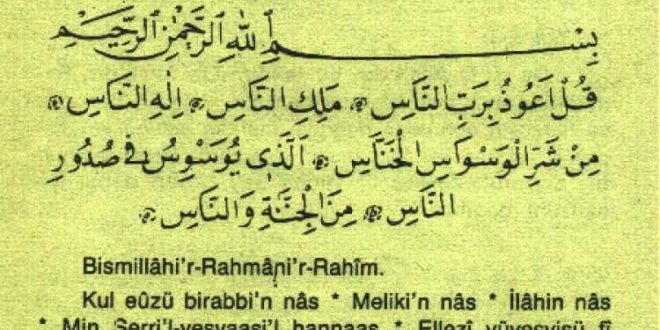 بِسْمِ اللهِ الرَّحْمٰنِ الرَّحِيمِ
قُلْ اَعُوذُ بِرَبِّ النَّاسِ ۞ مَلِكِ النَّاسِ ۞ اِلٰهِ النَّاسِ ۞
مِنْ شَرِّ الْوَسْوَاسِ الْخَنَّاسِ ۞ اَلَّذ۪ى يُوَسْوِسُ ف۪ى صُدُورِ
النَّاسِ ۞ مِنَ الْجِنَّةِ وَالنَّاسِ ۞
Bismillâhi'r-Rahmâni'r-Rahîm.
Kul eûzü birabbi'n nâs * Meliki'n nâs * İlâhin nâs
* Min Şerri'l-vesvaasi'l hannaas * Ellezî yüvesvisü fî